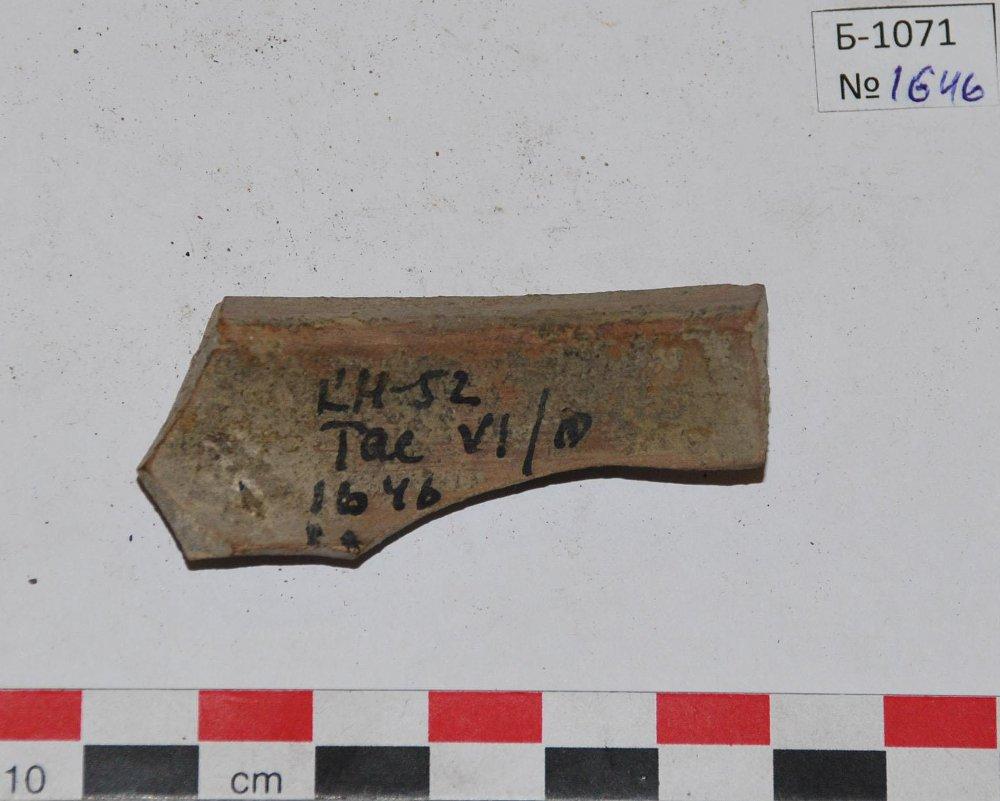 Б-1071
№ 1646
КН-52
Тас VI/
1646
10 cm